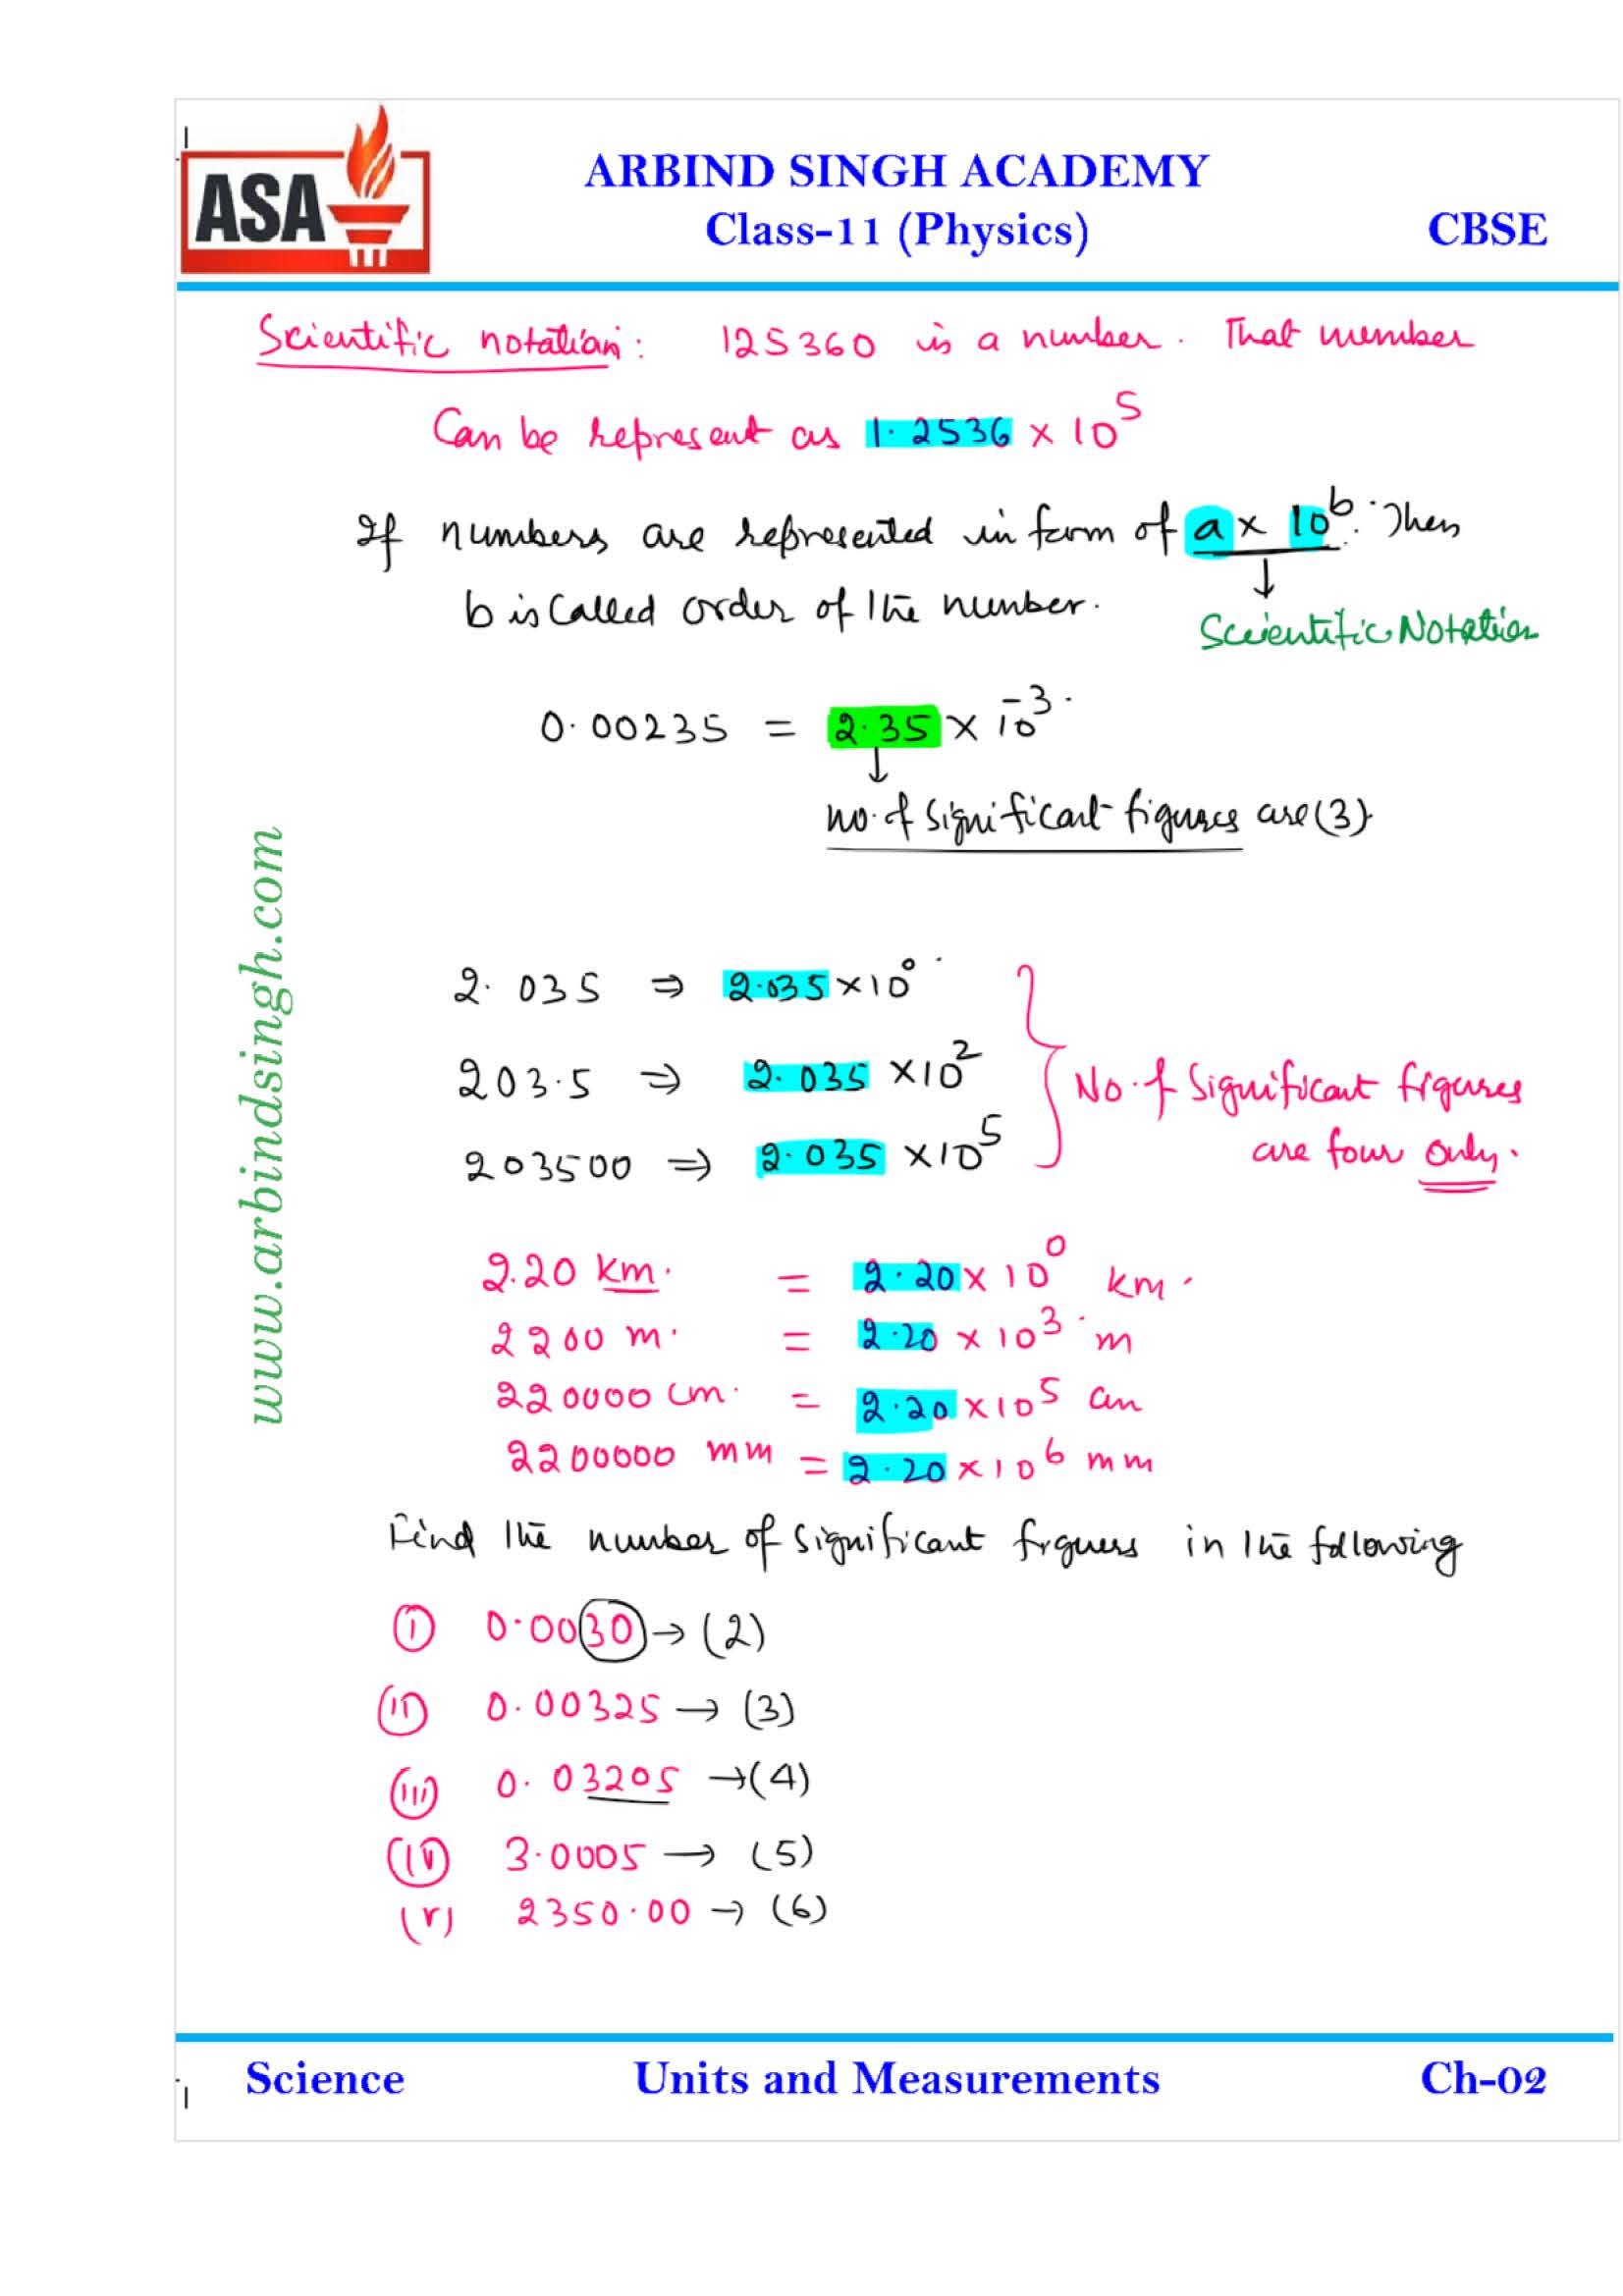 ASA
ARBIND SINGH ACADEMY
Class-11 (Physics)
CBSE
Scientific notation: 125360 is a number. That number
Can be represent as 1.2536 × 10⁵
If numbers are represented in form of a × 10ᵇ. Then
b is called order of the number.
Scientific Notation
0.00235 = 2.35 × 10⁻³
no. of significant figures are (3).
2.035 ⇒ 2.035 × 10⁰
203.5 ⇒ 2.035 × 10²
203500 ⇒ 2.035 × 10⁵
No. of significant figures
are four only.
2.20 km. = 2.20 × 10⁰ km.
2200 m. = 2.20 × 10³ m
220000 cm. = 2.20 × 10⁵ cm
2200000 mm = 2.20 × 10⁶ mm
Find the number of significant figures in the following
(i) 0.0030 → (2)
(ii) 0.00325 → (3)
(iii) 0.03205 → (4)
(iv) 3.0005 → (5)
(v) 2350.00 → (6)
www.arbindsingh.com
Science
Units and Measurements
Ch-02